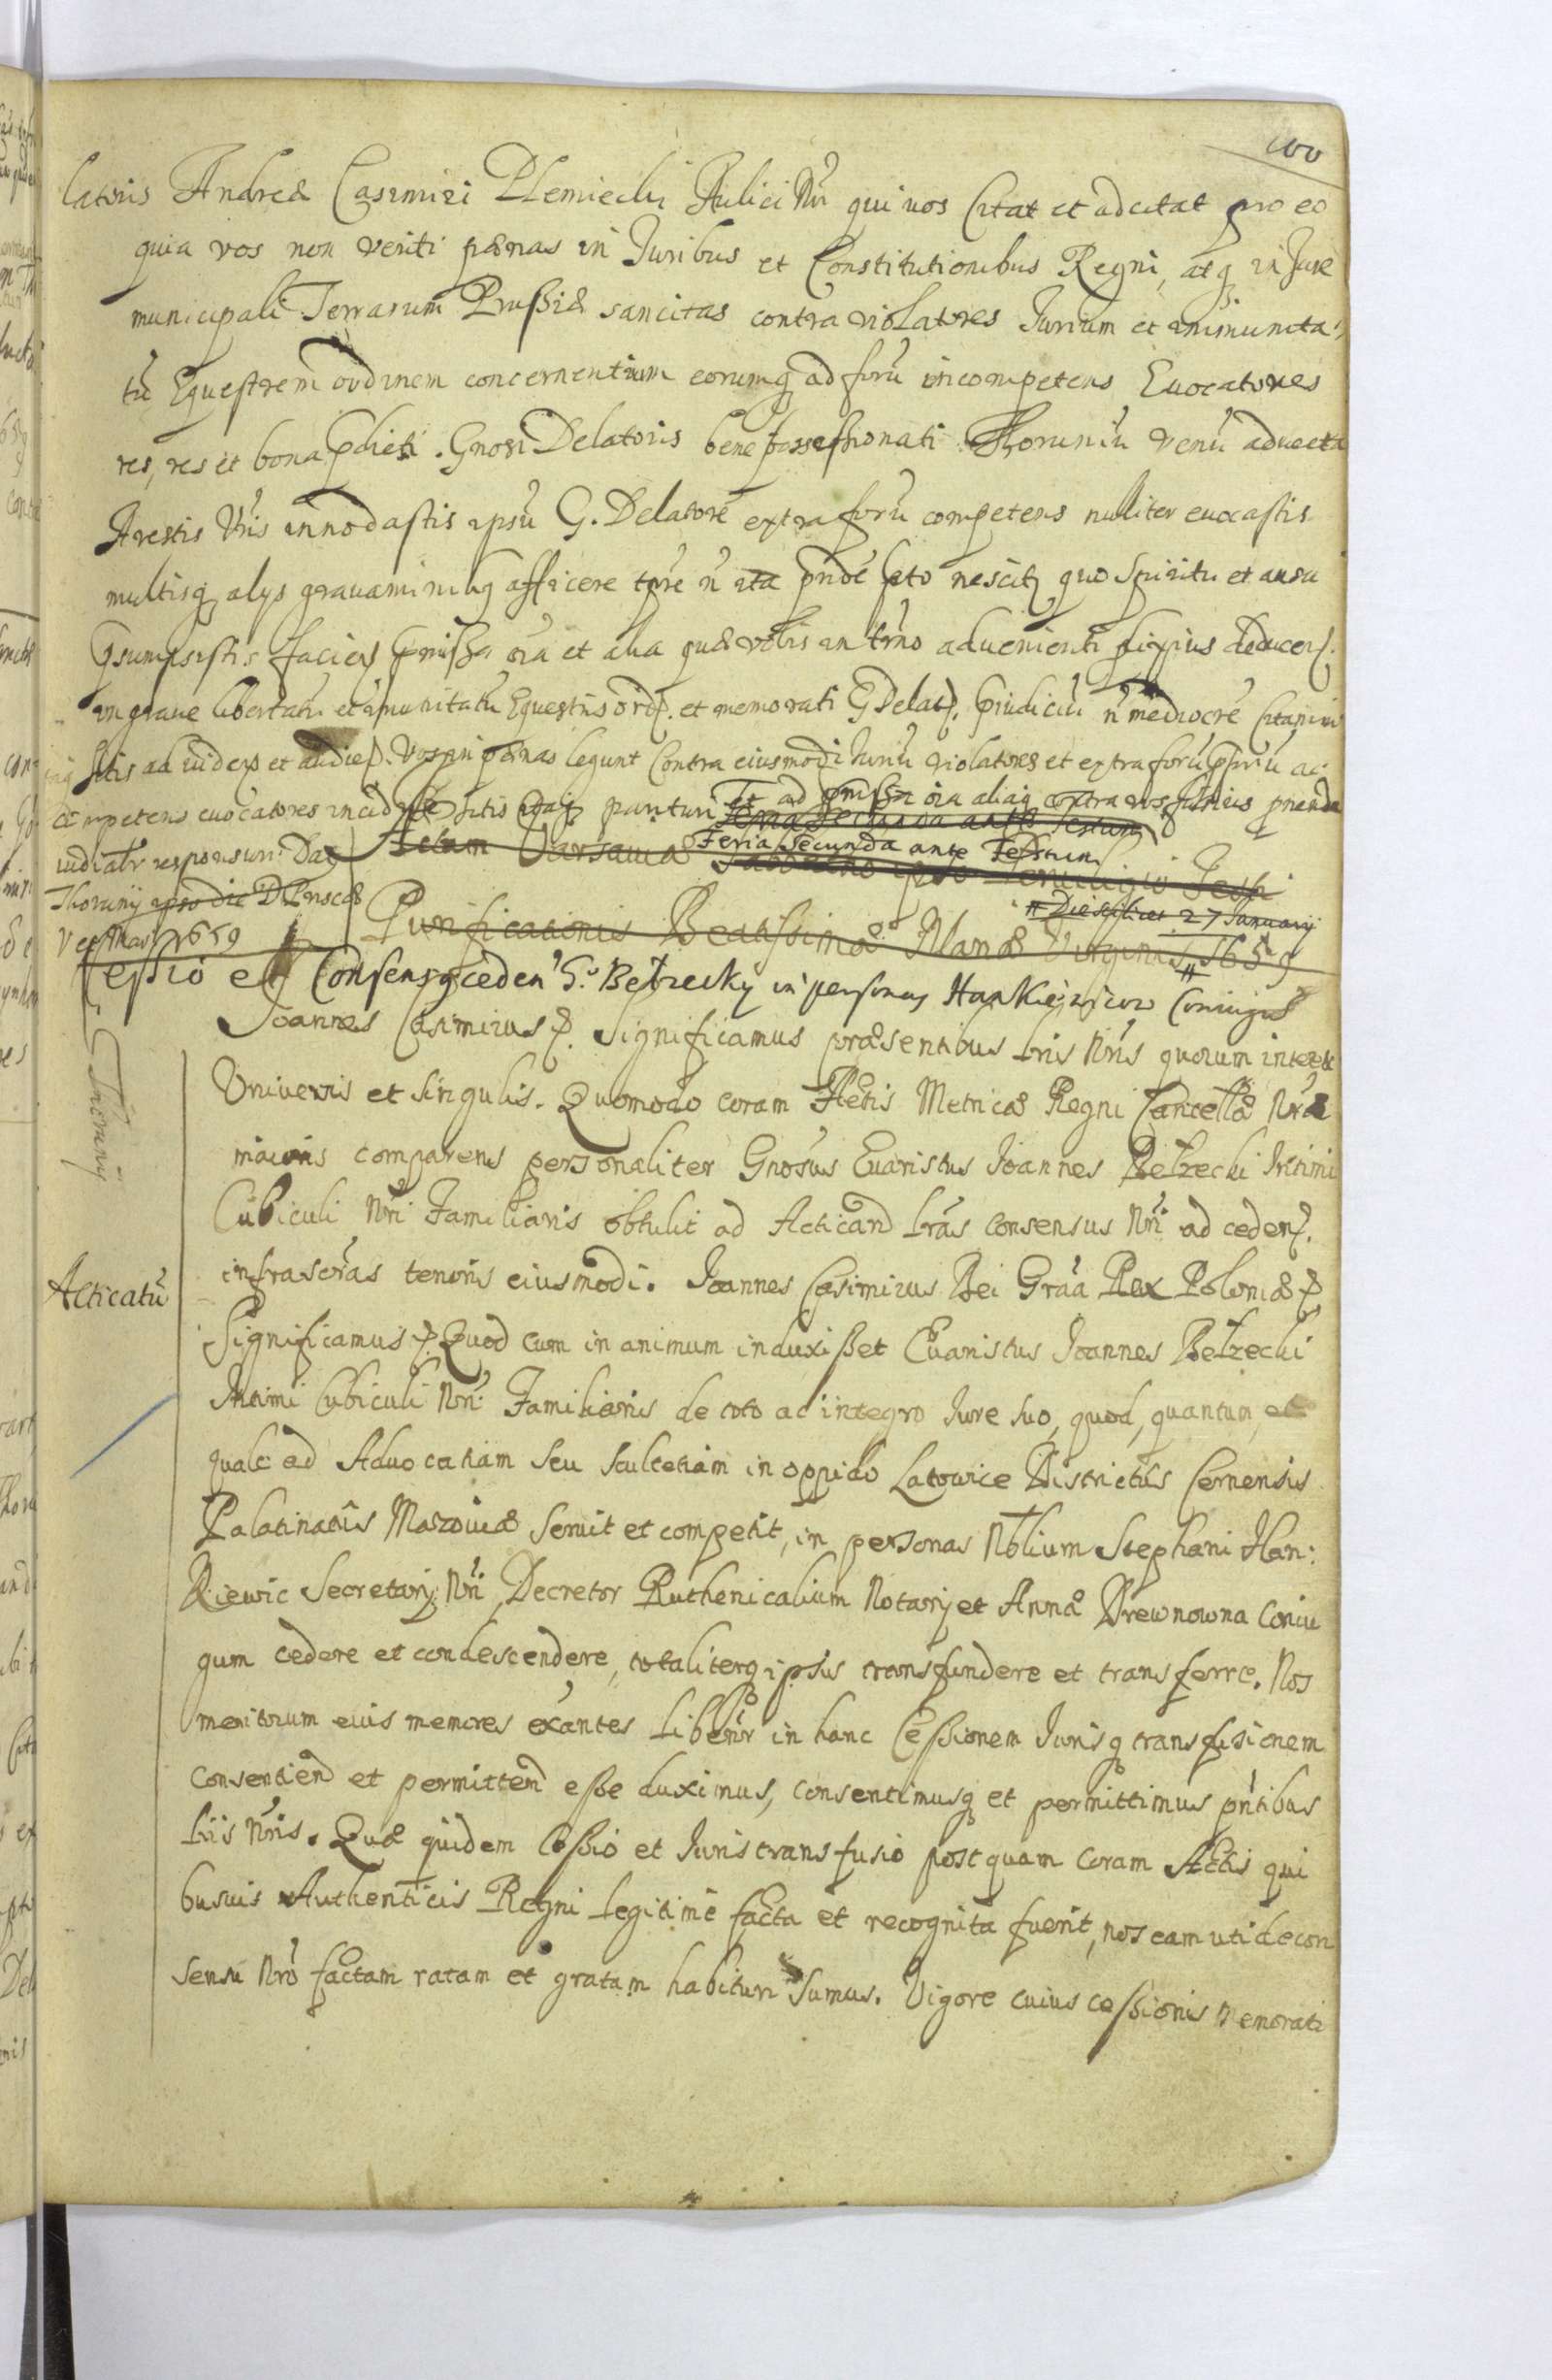 100
latoris Andreæ Casimiri Plemiecki Aulici Nri qui vos Citat et adcitat pro eo
quia vos non veriti pœnas in Juribus et Constitutionibus Regni, atq in Jure
municipali Terrarum Prussiæ sancitas contra violatores Jurium et immunita-
tu Equestrem ordinem concernentium eorumq ad foru incompetens Euocatores
res, res et bona pdicti Gnosi Delatoris bene possessionati Thoruniu venu aduecta
Arestis Vris innodastis ipsu G. Delatore extra foru competens nulliter euocastis
multisq alys grauaminibq afficere nescitq quo Spiritu et ausu
psumpsistis pmissa oia et alia quæ vobis in tmno aduenienti deducen
in graue libertatu et imunitatu Equestris ord. et memorati G Delat. piudiciu n mediocre Citamini
sitis ad videns et audien. Vos in pœnas legum Contra eiusmodi Juriu violatores et extra foru
competens euocatores sitis puniri Et ad pmissa oia aliaq contra vos
iudicialr responsuri. Dat Actum Varsauiæ Feria Secunda ante Festum
Thoruny ipso die
1659 Purificationis Beatissimæ Mariæ Virginis 1659
# Die scilicet 27 January
Cessio et Consensq ceden G. Bełzecky in personas Hankiewicow Coniugu
Thoruny
Joannes Casimirus. Significamus præsentibus Lris Nris quorum interest
Vniuersis et singulis. Quomodo coram Actis Metricæ Regni Cancellæ Nræ
maioris comparens personaliter Gnosus Euaristus Joannes Bełzecki Intimi
Cubiculi Nri Familiaris obtulit ad Acticand Lras Consensus Nri ad ceden.
Acticatu
infrascras tenoris eiusmodi. Joannes Casimirus Dei Graa Rex Poloniæ
Significamus Quod cum in animum induxisset Euaristus Joannes Bełzecki
Intimi Cubiculi Nri Familiaris de toto ac integro Jure suo, quod, quantum, et
quale ad Aduocatiam seu scultetiam in oppido Latowice Districtus Cernensis
Palatinatus Mazouiæ seruit et competit, in personas Nblium Stephani Han:
kiewic Secretarij Nri, Decretor Ruthenicalium Notarij et Annæ Drewnowna Coniu
gum cedere et condescendere, totaliterq ipsius transfundere et transferre. Nos
meritorum eius memores exantes Libentr in hanc Cessionem Jurisq transfusionem
Consentiend et permittend esse duximus, consentimusq et permittimus pntibus
Lris Nris. Quæ quidem Cessio et Juris transfusio postquam Coram Actis qui
busuis Authenticis Regni Legitime facta et recognita fuerit, nos eam uti de con
sensu Nro factam ratam et gratam habituri sumus. Vigore cuius cessionis memorati